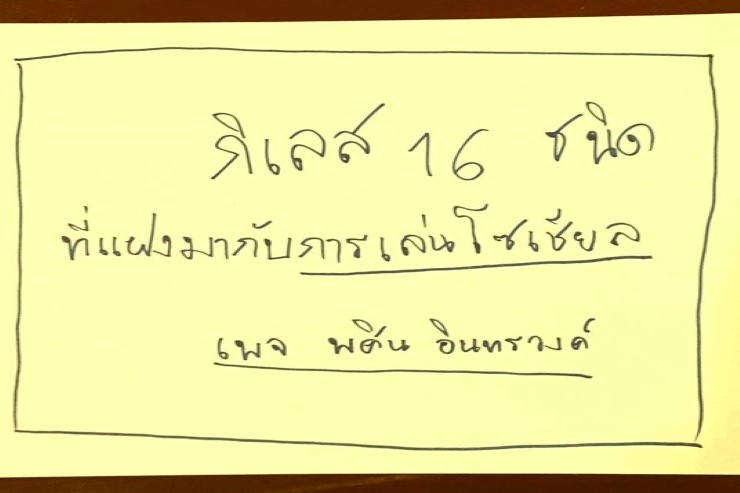 กิเลส 16 ชนิด
ที่แฝงมากับการเล่นโซเชียล
เพจ พศิน อินทรวงค์